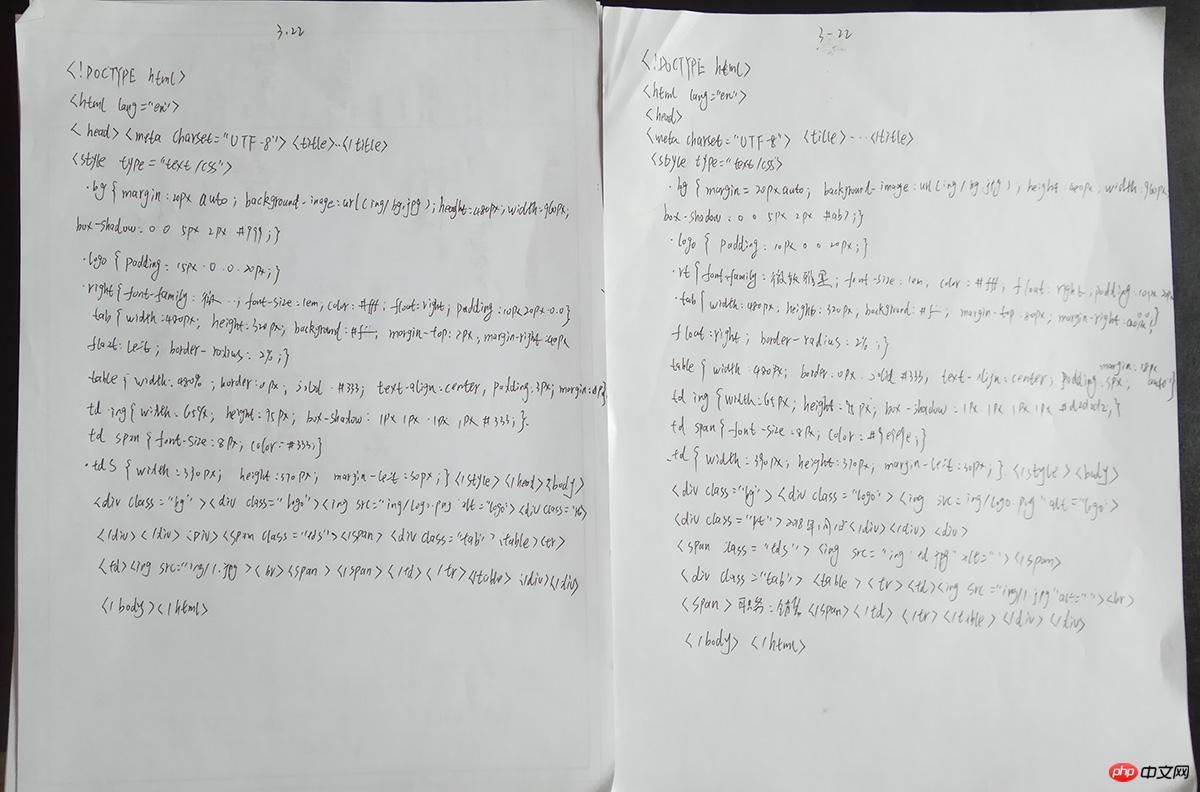 3.22
<!DOCTYPE html>
<html lang="en">
<head><meta charset="UTF-8"><title>..</title>
<style type="text/css">
.bg{margin:20px auto; background-image:url(ing/bg.jpg); height:480px; width:960px;
box-shadow:0 0 5px 2px #999;}
.logo{padding:15px 0 0 20px;}
.right{font-family:微..; font-size:1em; color:#fff; float:right; padding:10px 20px 0 0}
tab{width:480px; height:320px; background:#f margin-top:2px; margin-right 40px
float:left; border-radius:2%;}
table; width:480%; border:0px; solid #333; text-align:center, padding:3px; margin:
td ing{width:65%x; height:95px; box-shadow: 1px 1px 1px 1px #333;}
td span{font-size:8px; color:#333;}
.tds{width:390px; height:370px; margin-left:50px;}</style></head><body>
<div class="bg"><div class="logo"><ing src="ing/logo.png alt="logo"><div class=
</div></div><DIV><span class="tds"></span> <div class="tab"><table><tr>
<td><ing src="ing/1.jpg> <span></span></td></tr></table></div></div>
</body></html>
3-22
<!DOCTYPE html>
<html lang="en">
<head>
<meta charset="UTF-8"> <title>...</title>
<style type="text/css>
.bg{margin=20px auto; background-image:url(ing/bg.jpg); height:480px; width:960px;
box-shadow:0 0 5px 2px #ab7;}
.logo{padding:10px 0 0 20px;}
.rt{font-family:微软雅黑; font-size:1em, color:#fff, float:right; padding:10px 20px
0 0;}
.tab{width:480px, height:320px, background:#f margin-top:80px; margin-right
float:right; border-radius:2%;}
table{width:480px; border:0px solid #333, text-align:center, padding:5px, margin: auto;}
td ing{width:65px; height:95px; box-shadow:1px 1px 1px 1px #d2d2d2;}
td span{font-size:8px; color:#9e9e9e;}
.td{width:390px; height:370px; margin-left:50px;} </style><body>
<div class="bg"><div class="logo"><ing src=ing/logo.png" alt="logo">
<div class="rt">2018年1月1</div></div> <div>
<span class="tds"><ing src="ing td.jpg" alt=""></span>
<div class="tab"> <table><tr><td><ing src="ing/1.jpg"alt=""> 
<span>职务:销售</span></td> </tr></table></div></div>
</body> </html>
php中文网